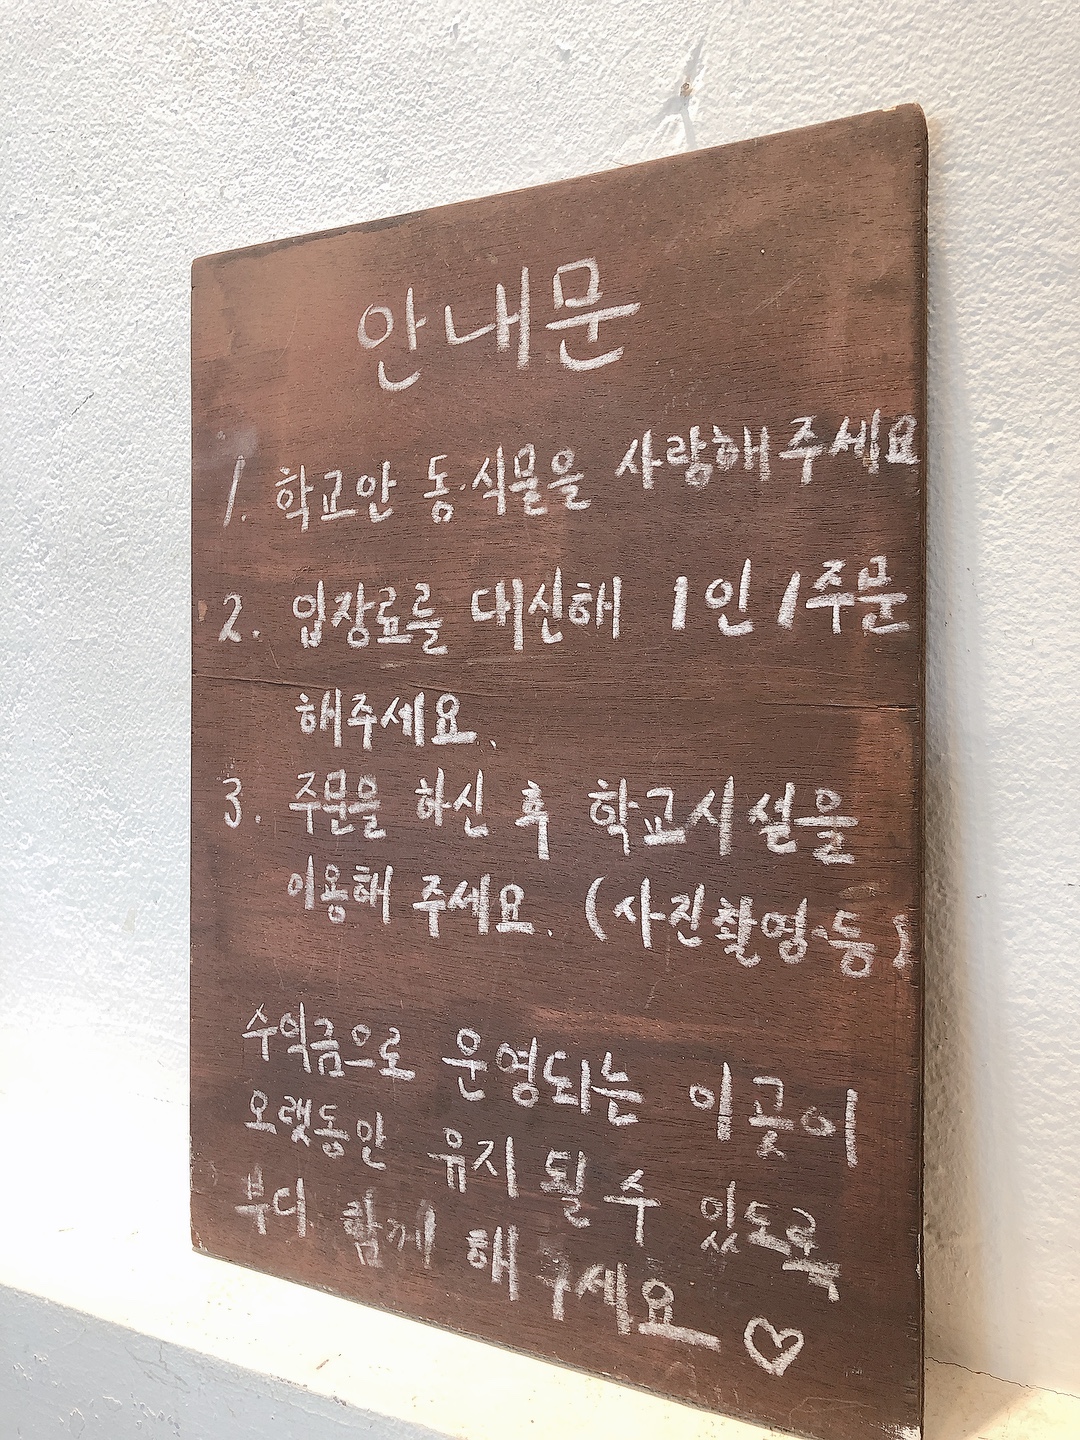 안내문
1. 학교안 동·식물을 사랑해 주세요
2. 입장료를 대신해 1인 1주문
해주세요.
3. 주문을 하신 후 학교시설을
이용해 주세요. (사진촬영·등)
수익금으로 운영되는 이곳이
오랫동안 유지 될 수 있도록
부디 함께 해 주세요 ♡